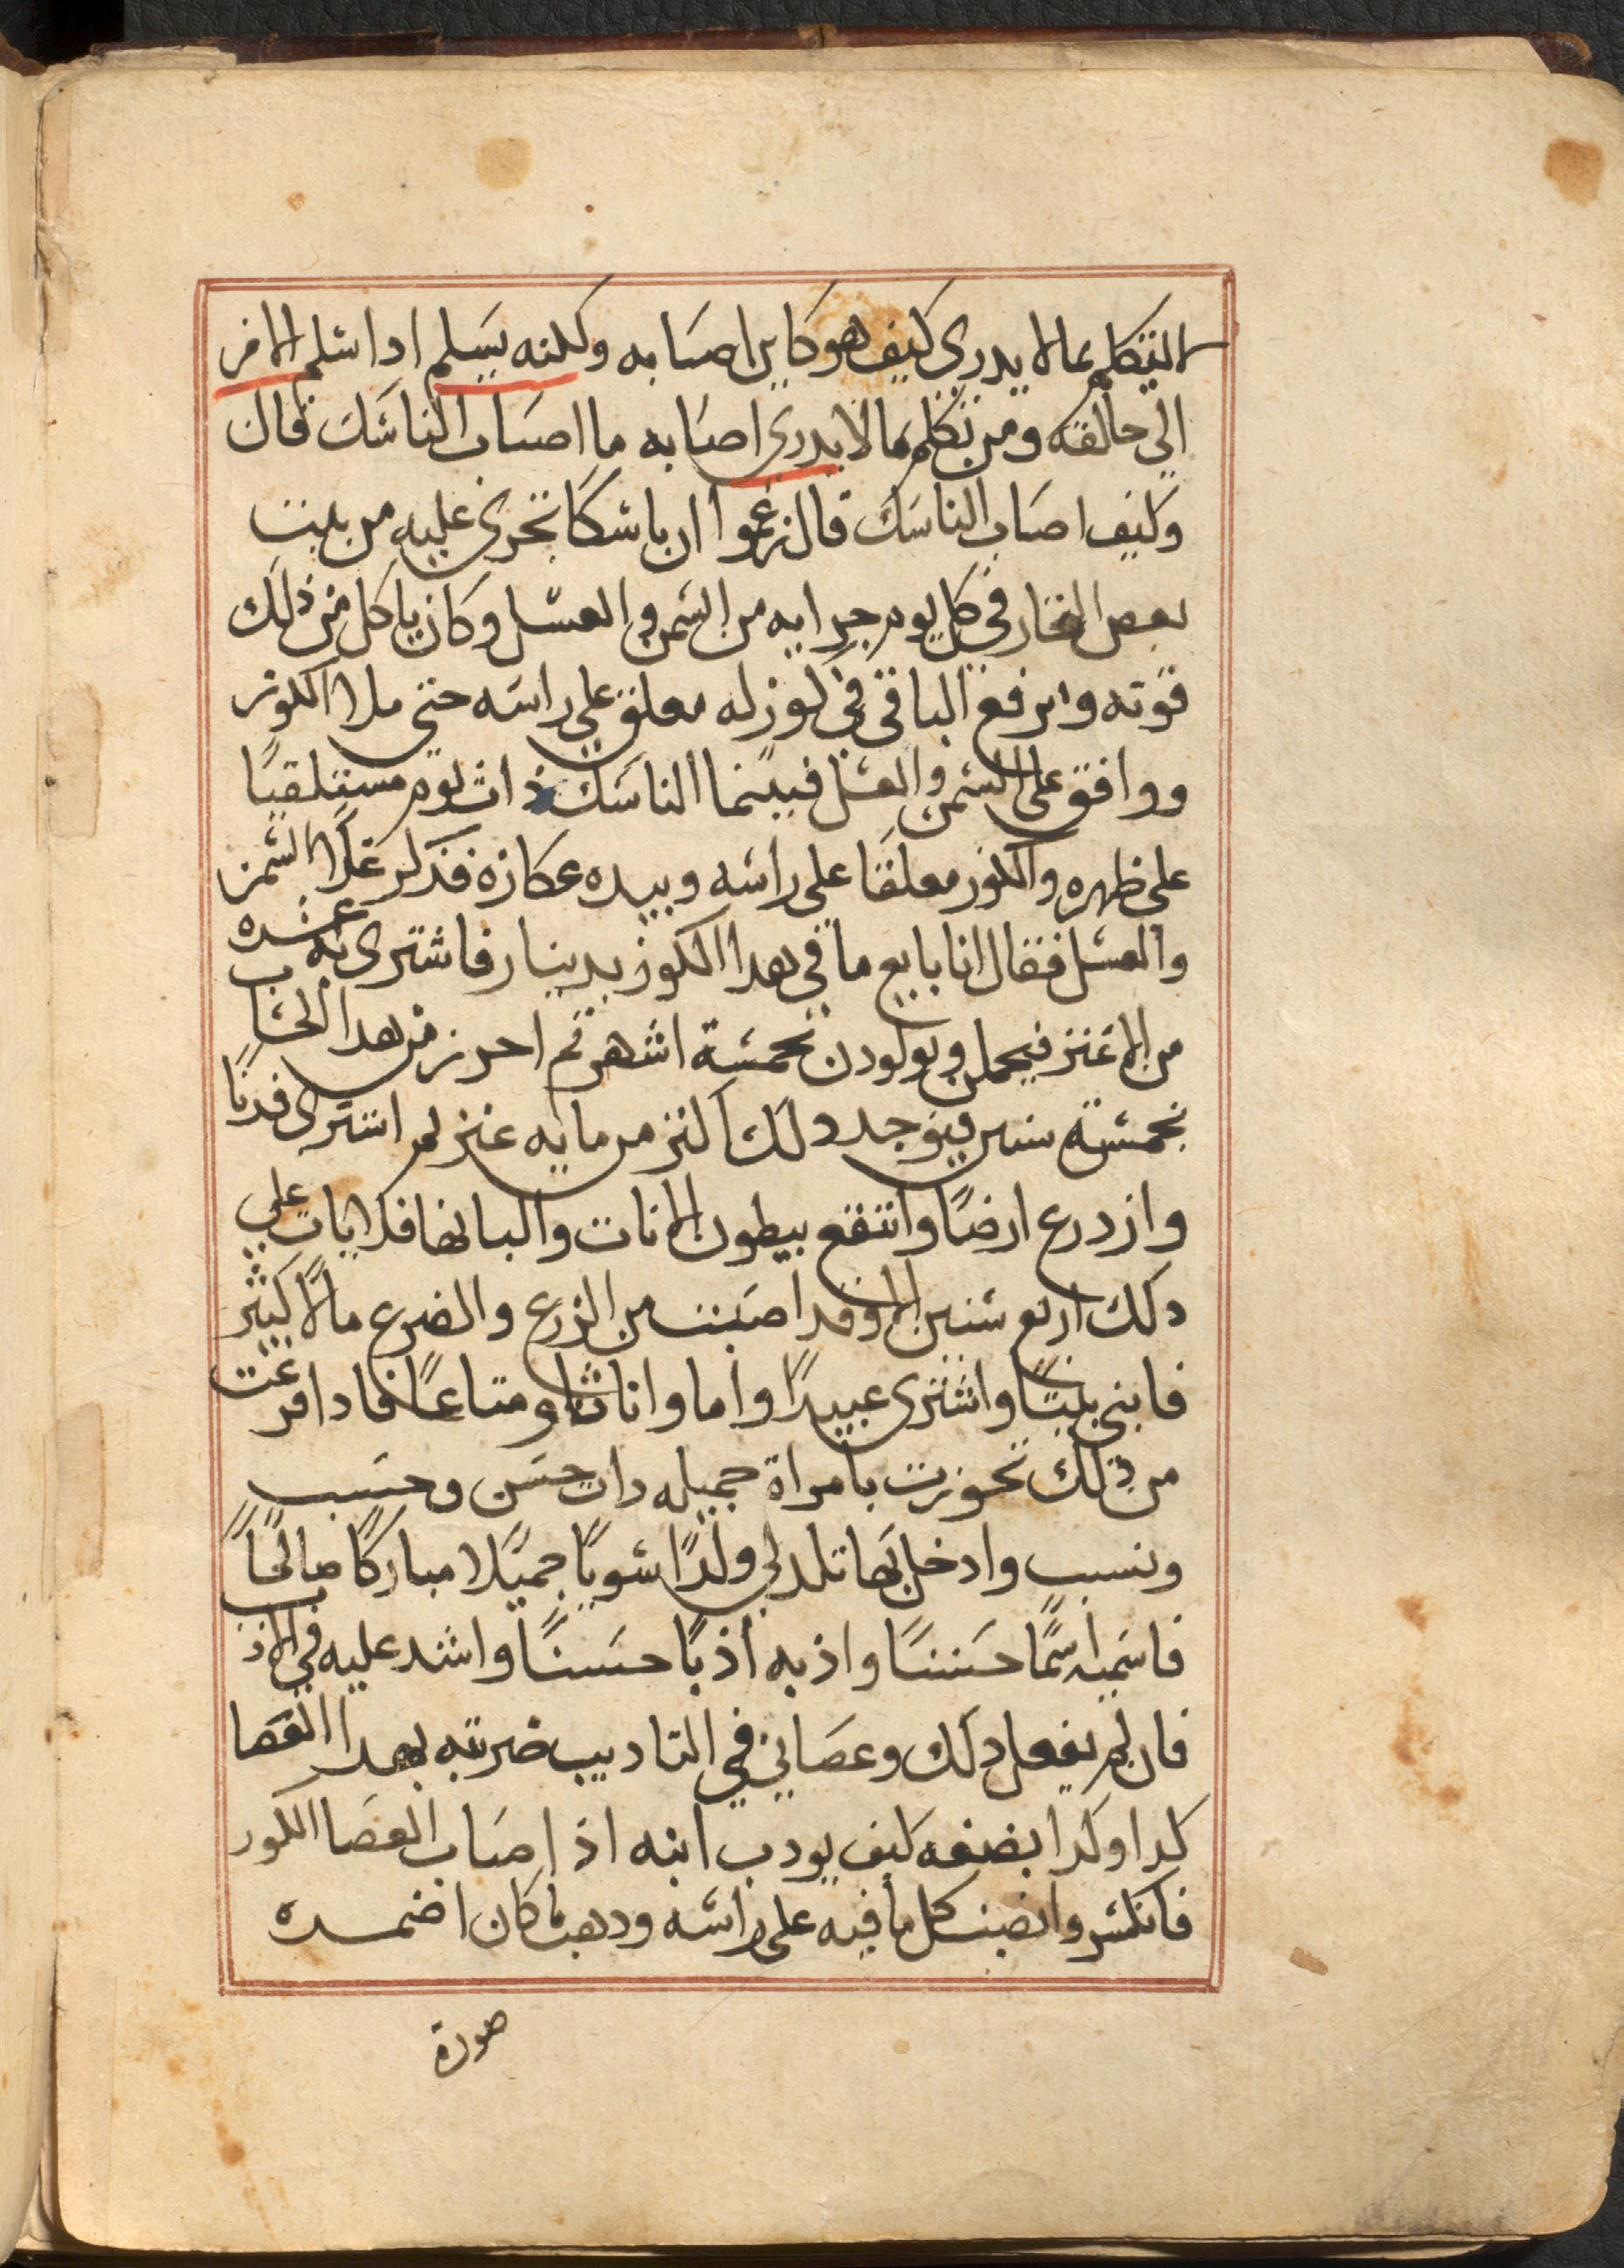 التكلم بما لا يدرى كيف هو كاين اصابه ولكنه يسلم ادا سلم الامر
الى خالقه ومن تكلم بما لا يدرى اصابه ما اصاب الناسك قال
وكيف اصاب الناسك قال زعموا ان ناسكا تجرى عليه من بيت
بعض التجار في كل يوم جرايه من السمن والعسل وكان ياكل من ذلك
قوته وايرفع الباقى في كوز له معلق على راسه حتى ملا الكوز
ووافق على السمن والعسل فبينما الناسك ذات يوم مستلقيًا
على ظهره والكوز معلقًا على راسه وبيده عكازه فذكر غلا السمن
والعسل فقال انا بايع ما في هدا الكوز بدينار فاشترى به عشره
من الاعنز فيحملن ويولودن بخمسة اشهر ثم احرز من هدا الحساب
بخمسة سنين فيوجد دلك اكتر من مايه عنز ثم اشترى فدنًا
وازدرع ارضًا وانتفع ببطون الاناث والبانها فلا يات على
دلك اربع سنين الا وقد اصبت من الزرع والضرع مالًا كثير
فابنى بيتًا واشترى عبيدًا واما واناثًا ومتاعًا فادا فرغت
من ذلك تجوزت بامراة جميله دات حسن وحسب
ونسب وادخل بها تلد لي ولدًا سويًا جميلًا مباركًا صالحًا
فاسميه اسمًا حسنًا واذبه أذبًا حسنًا واشد عليه في الاذب
فان لم يفعل دلك وعصاني في التاديب ضربته بهدا العصا
كدا وكدا بضفه كيف يودب ابنه اذ اصاب العصا الكوز
فانكسر وانصب كل ما فيه على راسه ودهب ما كان اضمده
صورة